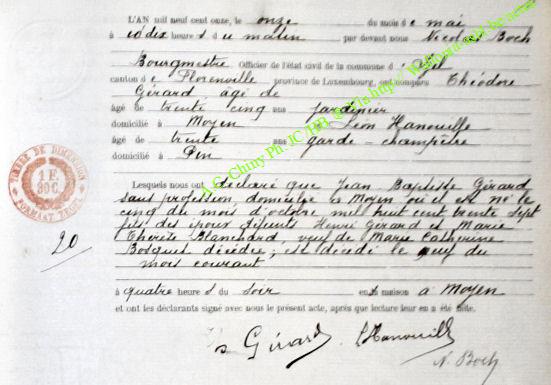 L'AN mil neuf cent onze, le onze du mois de mai
à dix heures du matin par devant nous Nicolas Boch
Bourgmestre Officier de l'état civil de la commune d
canton de Florenville province de Luxembourg, est comparu Théodore
Gérard âgé de
âgé de trente cinq ans jardinier
domicilié à Moyen Léon Hanouille
âgé de trente ans garde-champêtre
domicilié à Pin
Lesquels nous ont déclaré que Jean Baptiste Gérard
sans profession, domicilié à Moyen où il est né le
cinq du mois d'octobre mil huit cent trente sept
fils des époux défunts Henri Gérard et Marie
Thérèse Blanchard, veuf de Marie Catherine
Bosquet décédée; est décédé le neuf du
mois courant
à quatre heures du soir en maison à Moyen
et ont les déclarants signé avec nous le présent acte, après que lecture leur en a été faite.
Gérard LHanouille
N. Boch
TIMBRE DE DIMENSION
1 F.
30 C.
20
A.C. Chiny Ph. JC